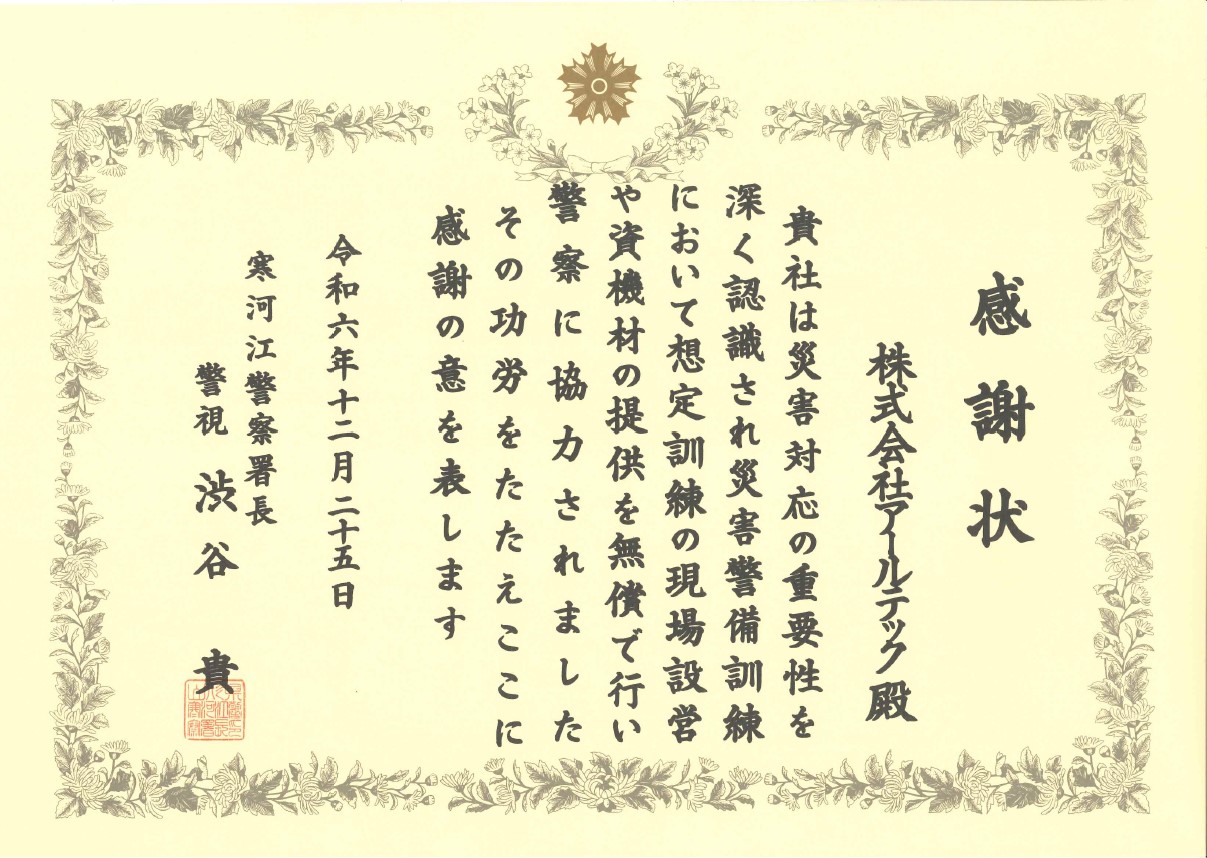 感謝状
株式会社アールテック殿
貴社は災害対応の重要性を
深く認識され災害警備訓練
において想定訓練の現場設営
や資機材の提供を無償で行い
警察に協力されました
その功労をたたえここに
感謝の意を表します
令和六年十二月二十五日
寒河江警察署長
警視 渋谷 貴